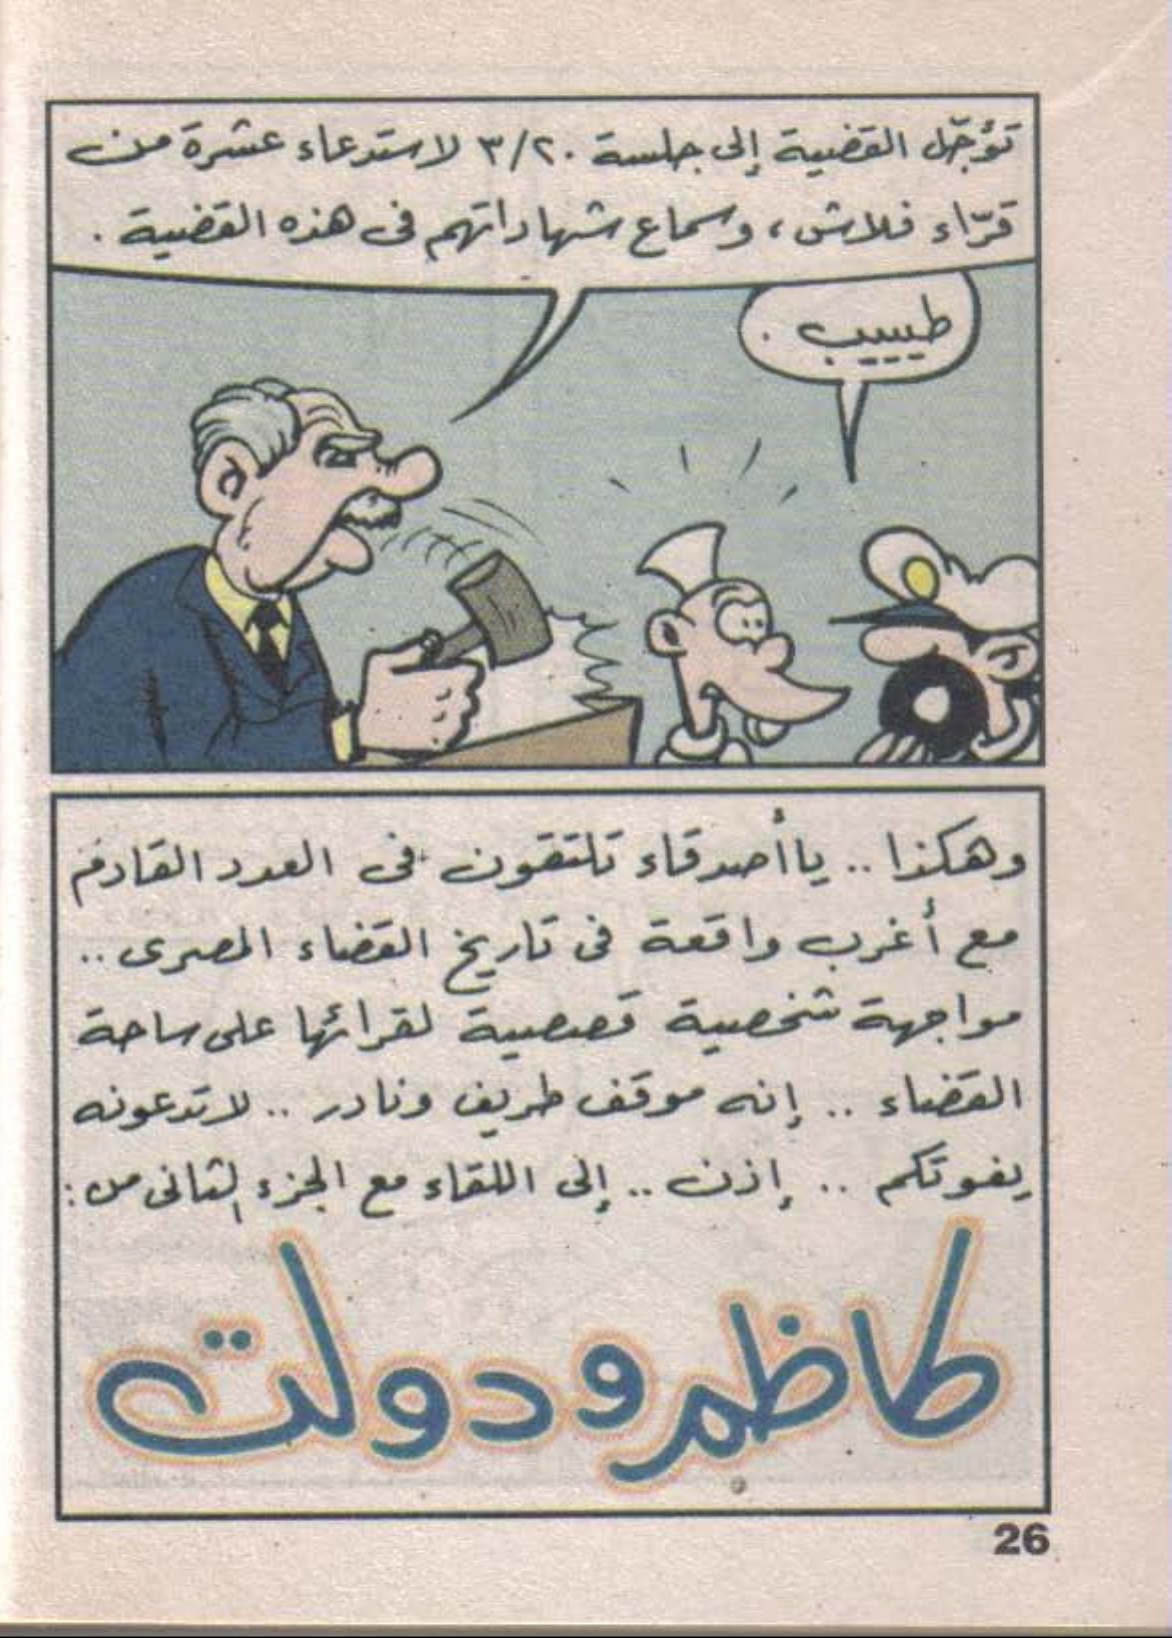 تؤجّل القضية إلى جلسة ٣/٢٠ لاستدعاء عشرة من
قرّاء فلاش، وسماع شهاداتهم فى هذه القضية.
طيييب.
وهكذا .. ياأصدقاء تلتقون فى العدد القادم
مع أغرب واقعة فى تاريخ القضاء المصرى ..
مواجهة شخصية قصصية لقرائها على ساحة
القضاء .. إنه موقف طريف ونادر .. لاتدعونه
يفوتكم .. إذن .. إلى اللقاء مع الجزء الثانى من:
كاظم ودولت
26